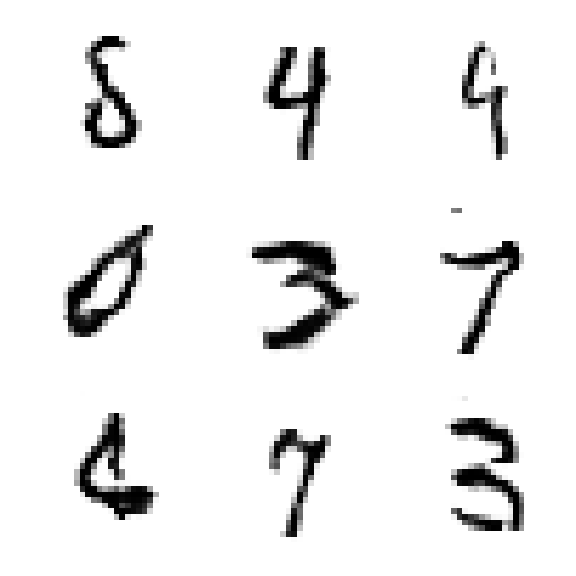 8 4 9
0 3 7
6 7 3